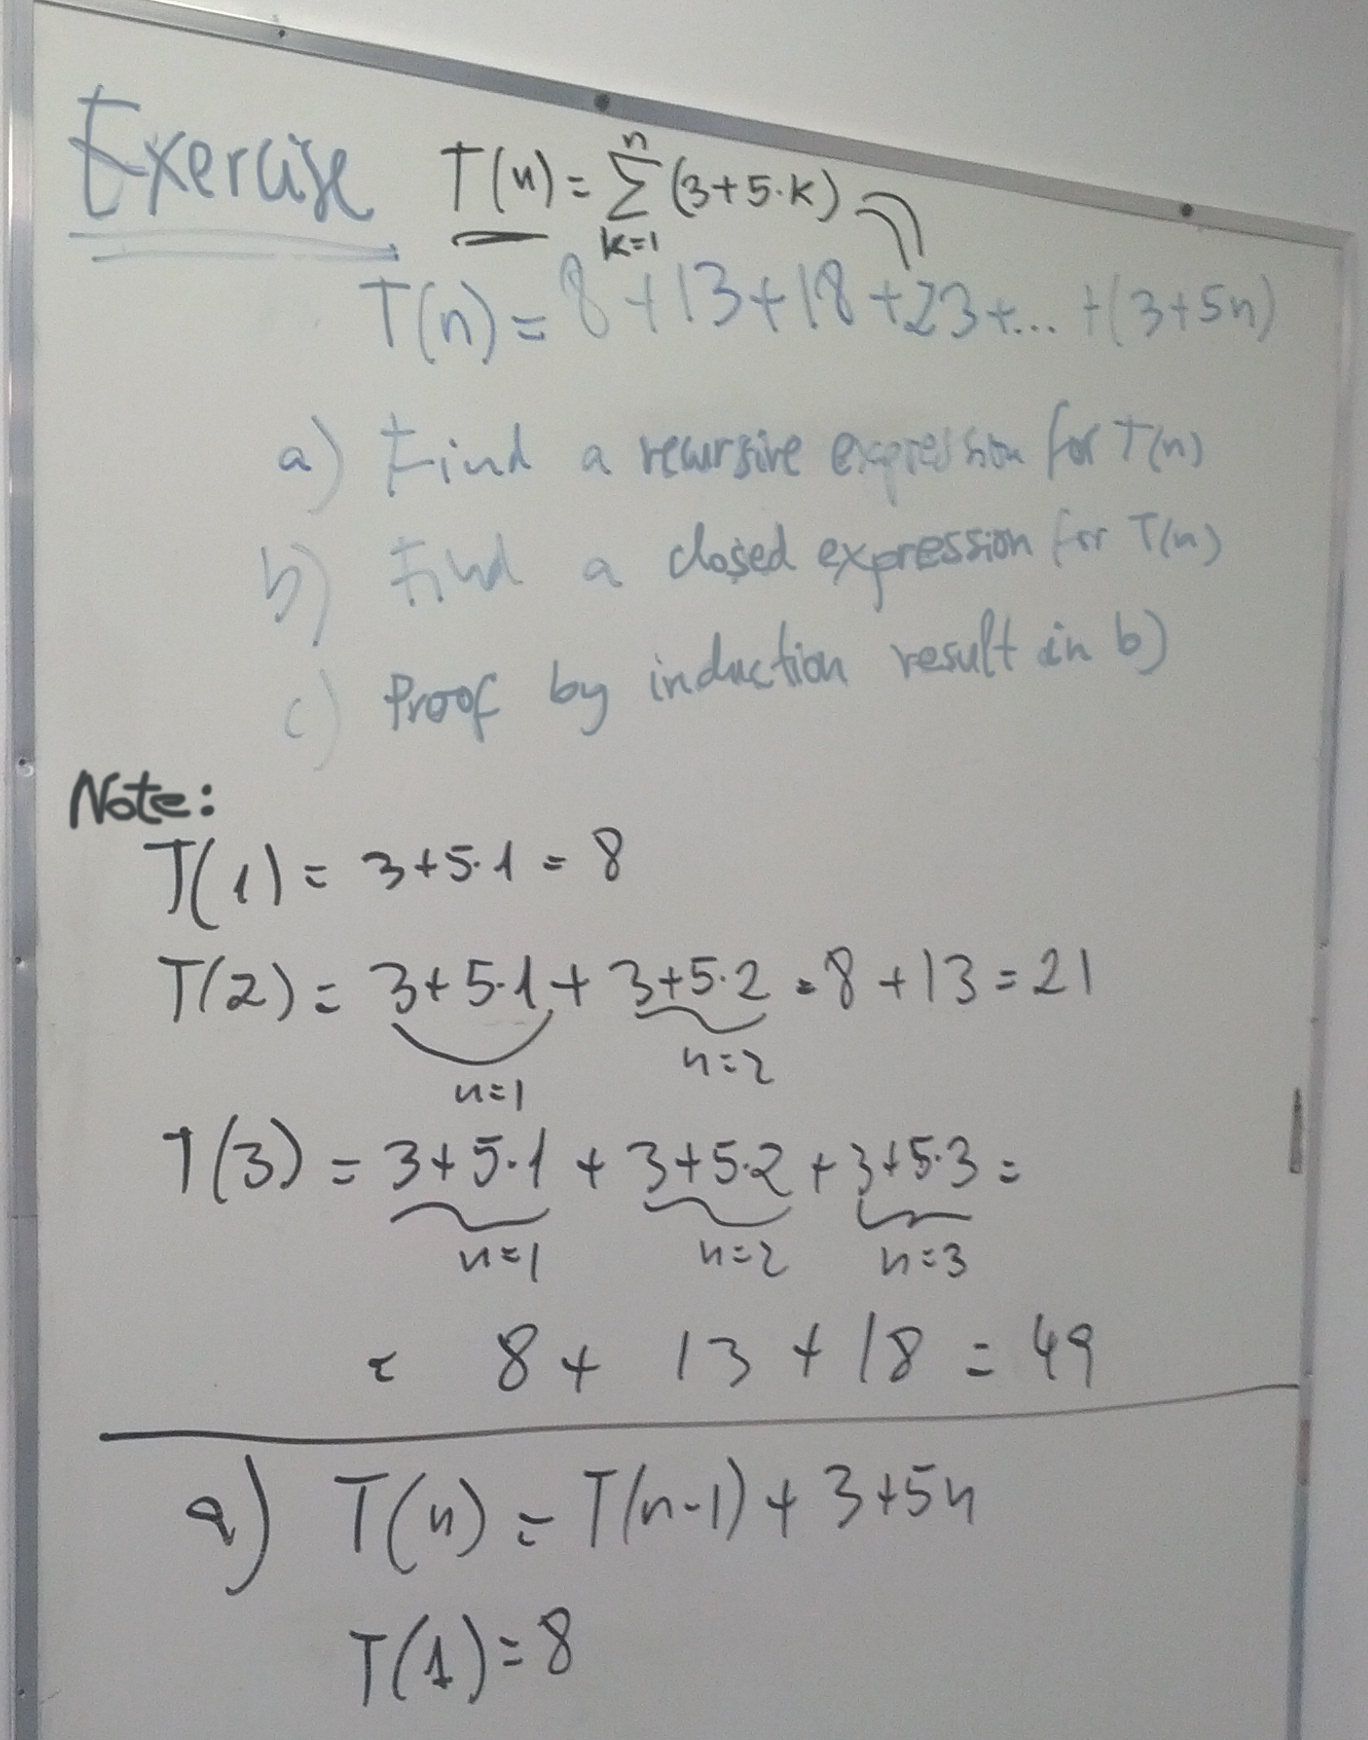 Exercise T(n) = n Σ k=1 (3+5·k)
T(n) = 8+13+18+23+... +(3+5n)
a) Find a recursive expression for T(n)
b) Find a closed expression for T(n)
c) Proof by induction result in b)
Note:
T(1) = 3+5·1 = 8
T(2) = 3+5·1 + 3+5·2 = 8+13 = 21
n=1 n=2
T(3) = 3+5·1 + 3+5·2 + 3+5·3 =
n=1 n=2 n=3
= 8 + 13 + 18 = 49
a) T(n) = T(n-1) + 3+5n
T(1) = 8